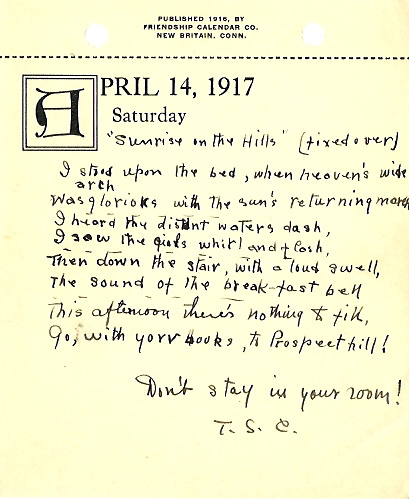 PUBLISHED 1916, BY
FRIENDSHIP CALENDAR CO.
NEW BRITAIN, CONN.
APRIL 14, 1917
Saturday
"Sunrise on the Hills" (fixed over)
I stood upon the bed, when heaven's wide
arch
Was glorious with the sun's returning march
I heard the distnt waters dash,
I saw the girls whirl and flash,
Then down the stair, with a loud swell,
The sound of the break-fast bell
This afternoon there's nothing to fill,
Go, with your books, to Prospect hill!
Don't stay in your room!
T. S. C.